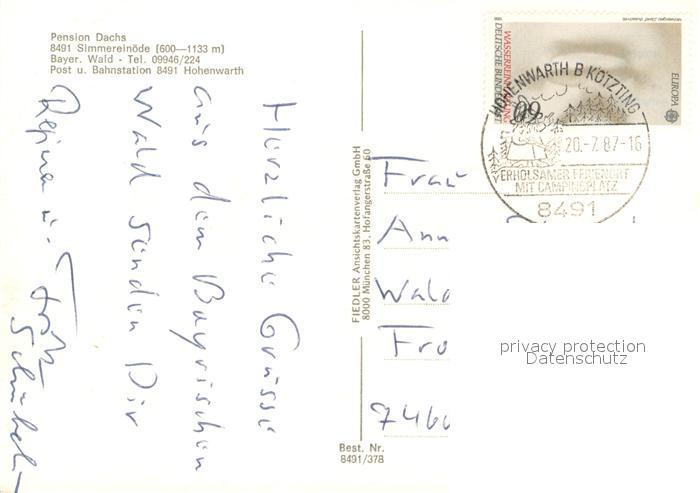 Pension Dachs
8491 Simmereinöde (600—1133 m)
Bayer. Wald - Tel. 09946/224
Post u. Bahnstation 8491 Hohenwarth
Herzliche Grüsse
aus dem Bayrischen
Wald senden Dir
Regina u. Fritz
FIEDLER Ansichtskartenverlag GmbH
8000 München 83, Hofangerstraße 60
Best. Nr.
8491/378
DEUTSCHE BUNDESPOST
WASSERREINHALTUNG
60
EUROPA
HOHENWARTH B KÖTZTING
20.-7.87-16
ERHOLSAMER FERIENORT
MIT CAMPINGPLATZ
8491
Frau
Ann
Wald
Fro
7460
privacy protection
Datenschutz